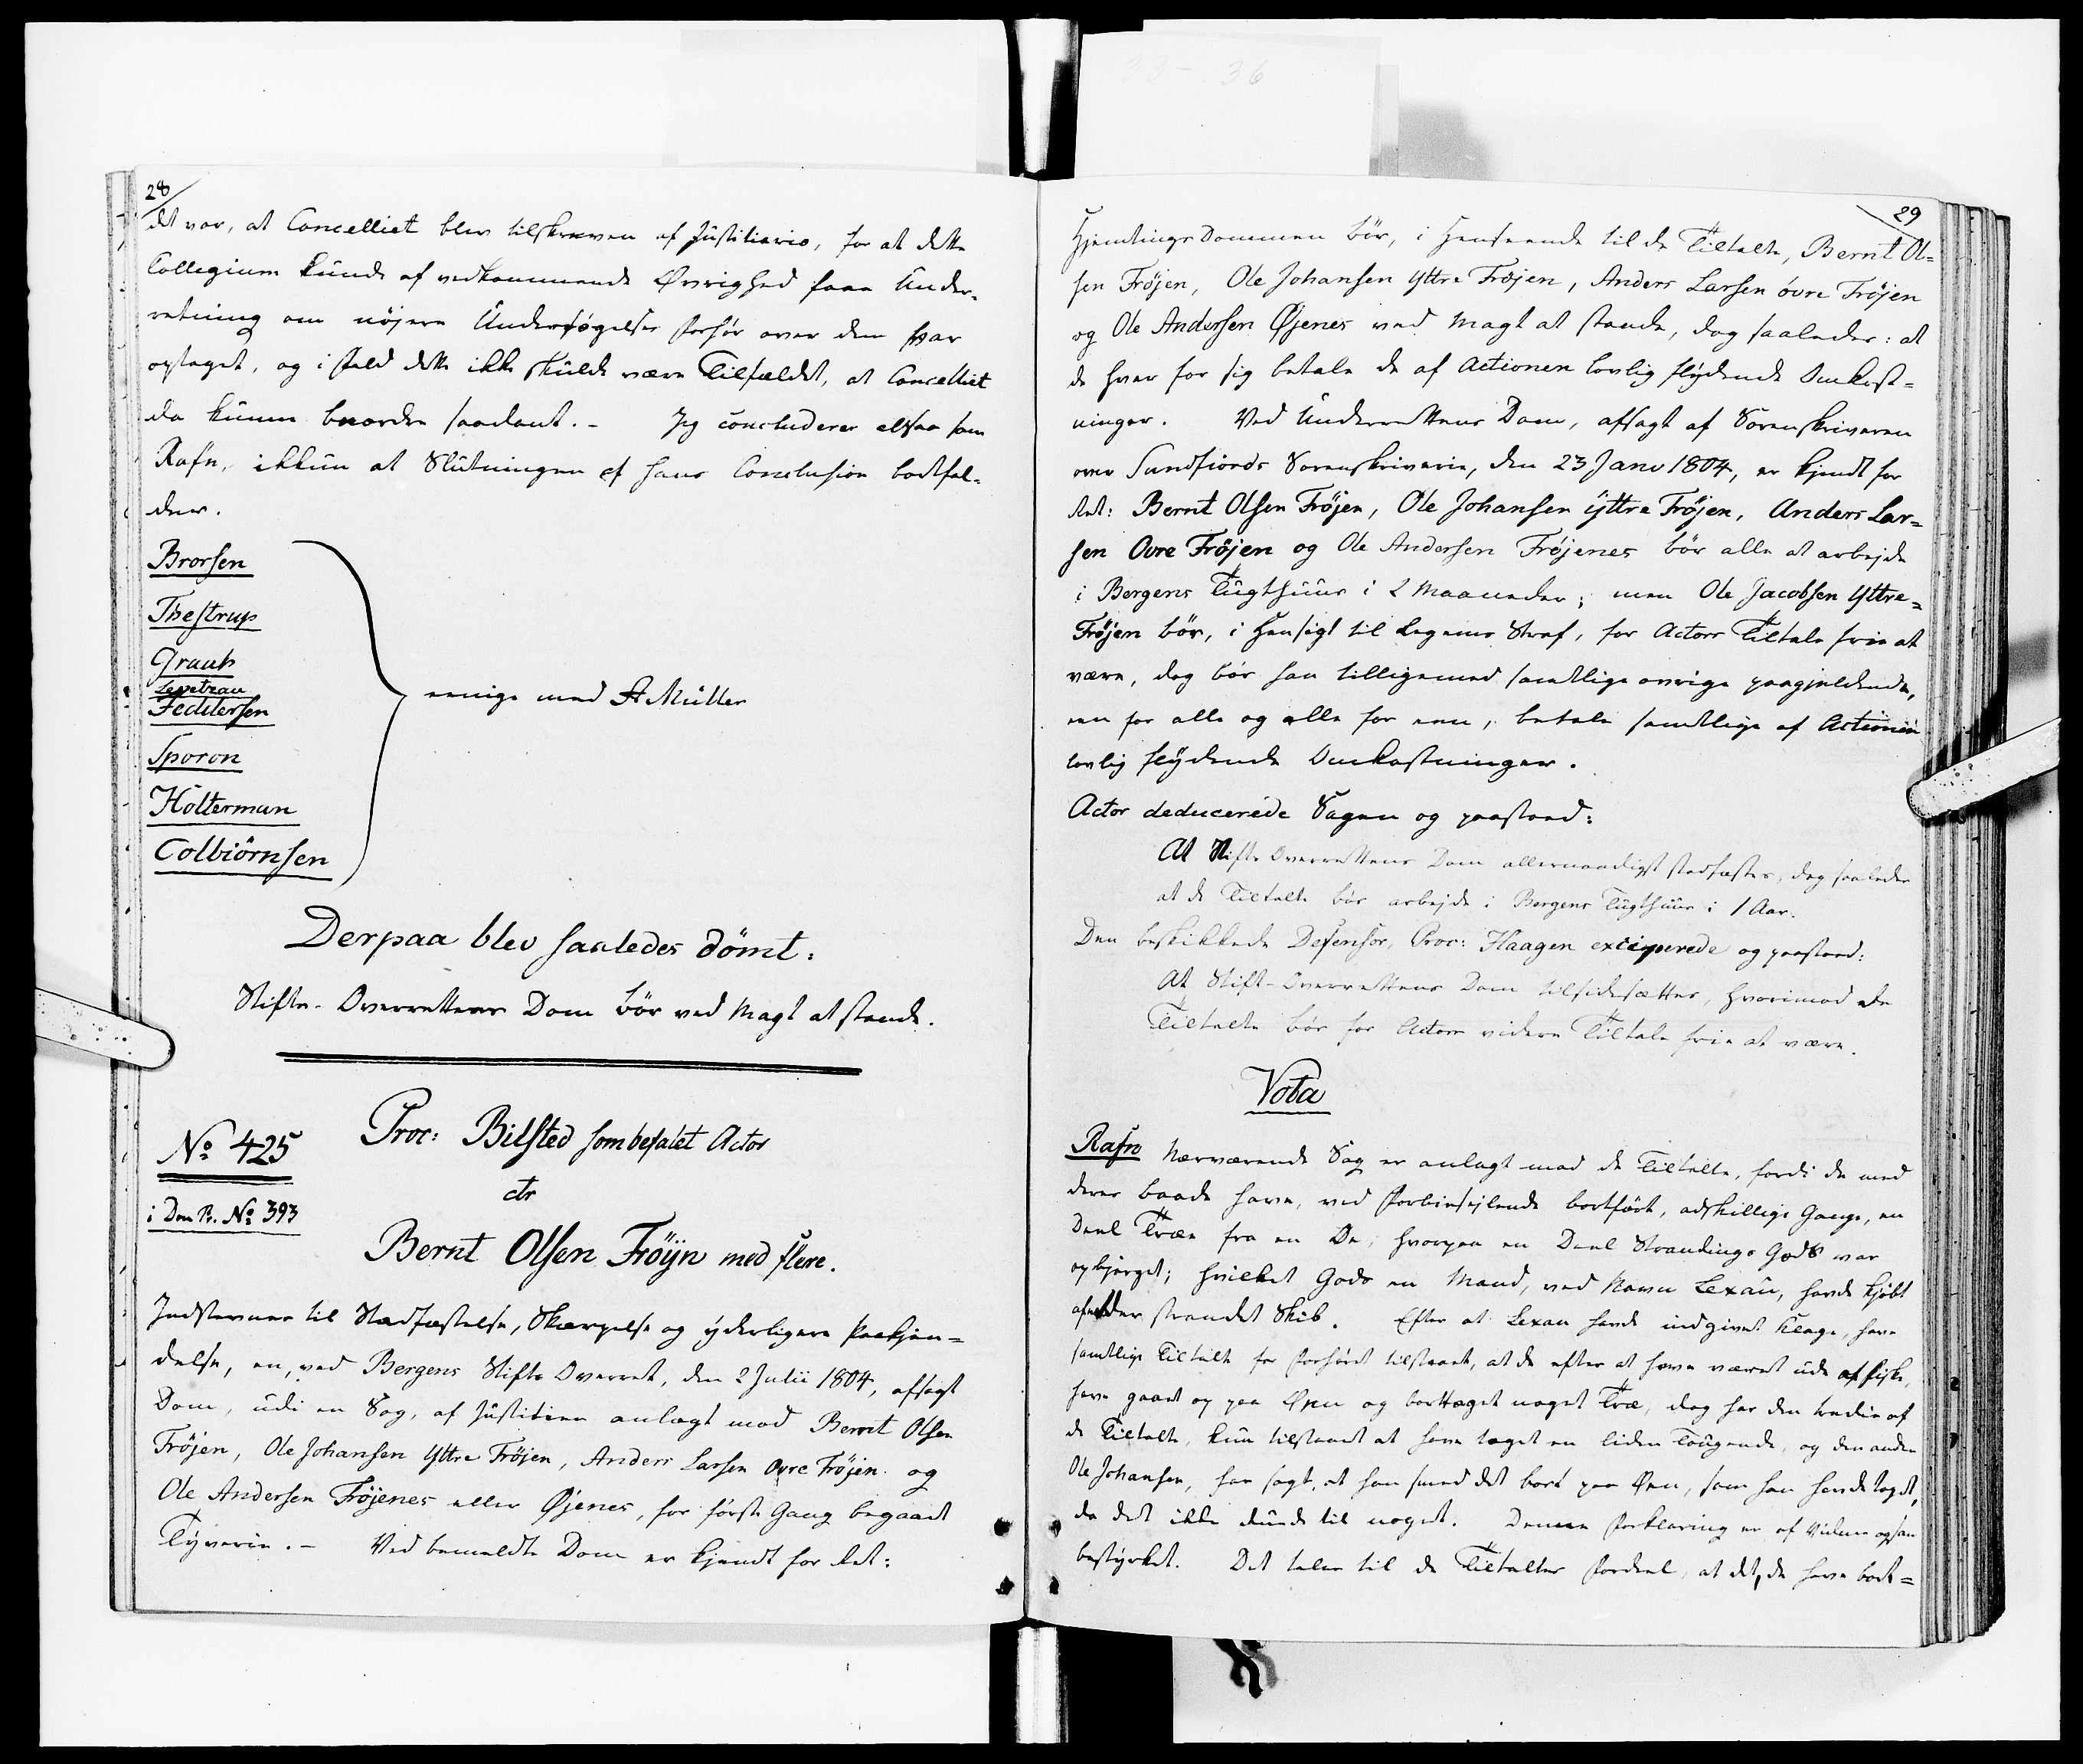 28
det var, at Cancelliet blev tilskreven af Justitiario, for at dette
Collegium kunde af vedkommende Øvrighed faae Under-
retning om nöjere Undersøgelses Forhör over dem var
optaget, og i fald dette ikke skulde være Tilfældet, at Cancelliet
da kunne beordre saadant. – Jeg concluderer altsaa som
Rafn, ikkun at Slutningen af hans Conclusion bortfal-
der.
Brorsen
Thestrup
Graah
Levetzau
Feddersen
Sporon
Holterman
Colbiörnsen
eenige med A Müller
Derpaa blev saaledes dömt:
Stifts-Overrettens Dom bör ved Magt at stande.
No 425
i Don Pr. No 393
Proc: Bilsted som befalet Actor
ctr
Bernt Olsen Fröÿn med flere.
Indstevner til Stadfæstelse, Skærpelse og ÿderligere Paakjen=
delse, en, ved Bergens Stifts Overret, den 2 Julii 1804, afsagt
Dom, udi en Sag, af Justitien anlagt mod Bernt Olsen
Fröjen, Ole Johansen Yttre Fröjen, Anders Larsen Ovre Fröjen og
Ole Andersen Fröjenes eller Øjenes, for förste Gang begaaet
Tyverie. – Ved bemeldte Dom er kjendt for Ret:
29
HjemtingsDommen bör, i Henseende til de Tiltalte, Bernt Ol=
sen Fröjen, Ole Johansen Yttre Fröjen, Anders Larsen övre Fröjen
og Ole Andersen Øjenes ved Magt at stande, dog saaledes: at
de hver for sig betale de af Actionen lovlig flÿdende Omkost=
ninger. Ved Underrettens Dom, afsagt af Sorenskriveren
over Sundfiords Sorenskriverie, den 23 Janv 1804, er kjendt for
Ret: Bernt Olsen Fröjen, Ole Johansen ÿttre Fröjen, Anders Lar=
sen Ovre Fröjen og Ole Andersen Fröjenes bör alle at arbejde
i Bergens Tugthuus i 2 Maaneder; men Ole Jacobsen Yttre=
Fröjen bör, i Hensigt til Legems Straf, for Actors Tiltale frie at
være, dog bör han tilligemed samtlige øvrige paagjeldende,
een for alle og alle for een, betale samtlige af Actionen
lovlig flÿdende Omkostninger.
Actor deducerede Sagen og paastod:
At Stifts Overrettens Dom allernaadigst stadfæstes, dog saaledes
at de Tiltalte bör arbejde i Bergens Tugthuus i 1 Aar.
Den beskikkede Defensor, Proc: Haagen exciperede og paastod:
At Stift-Overrettens Dom tilsidesættes, hvorimod de
Tiltalte bör for Actors videre Tiltale frie at være.
Vota
Rafn Nærværende Sag er anlagt mod de Tiltalte, fordi de med
deres Baade have, ved Forbiesejlende bortfört, adskillige Gange, en
Deel Træe fra en Øe, hvorpaa en Deel Strandings Gods var
opbjerget; hvilket Gods en Mand, ved Navn Lexau, havde kjöbt
af strandet Skib. Efter at Lexau havde indgivet Klage, have
samtlige Tiltalte for Forhöret tilstaaet, at de efter at have været ude at fiske,
have gaaet op paa Øen og borttaget noget Træ, dog har den tredie af
de Tiltalte, kun tilstaaet at have taget en liden Tougende, og den anden
Ole Johansen, har sagt, at han smed det bort paa Øen, som han havde taget,
da det ikke duede til noget. Denne Forklaring er af Vidner ogsaa
bestÿrket. Det taler til de Tiltaltes Fordeel, at det, de have bort=